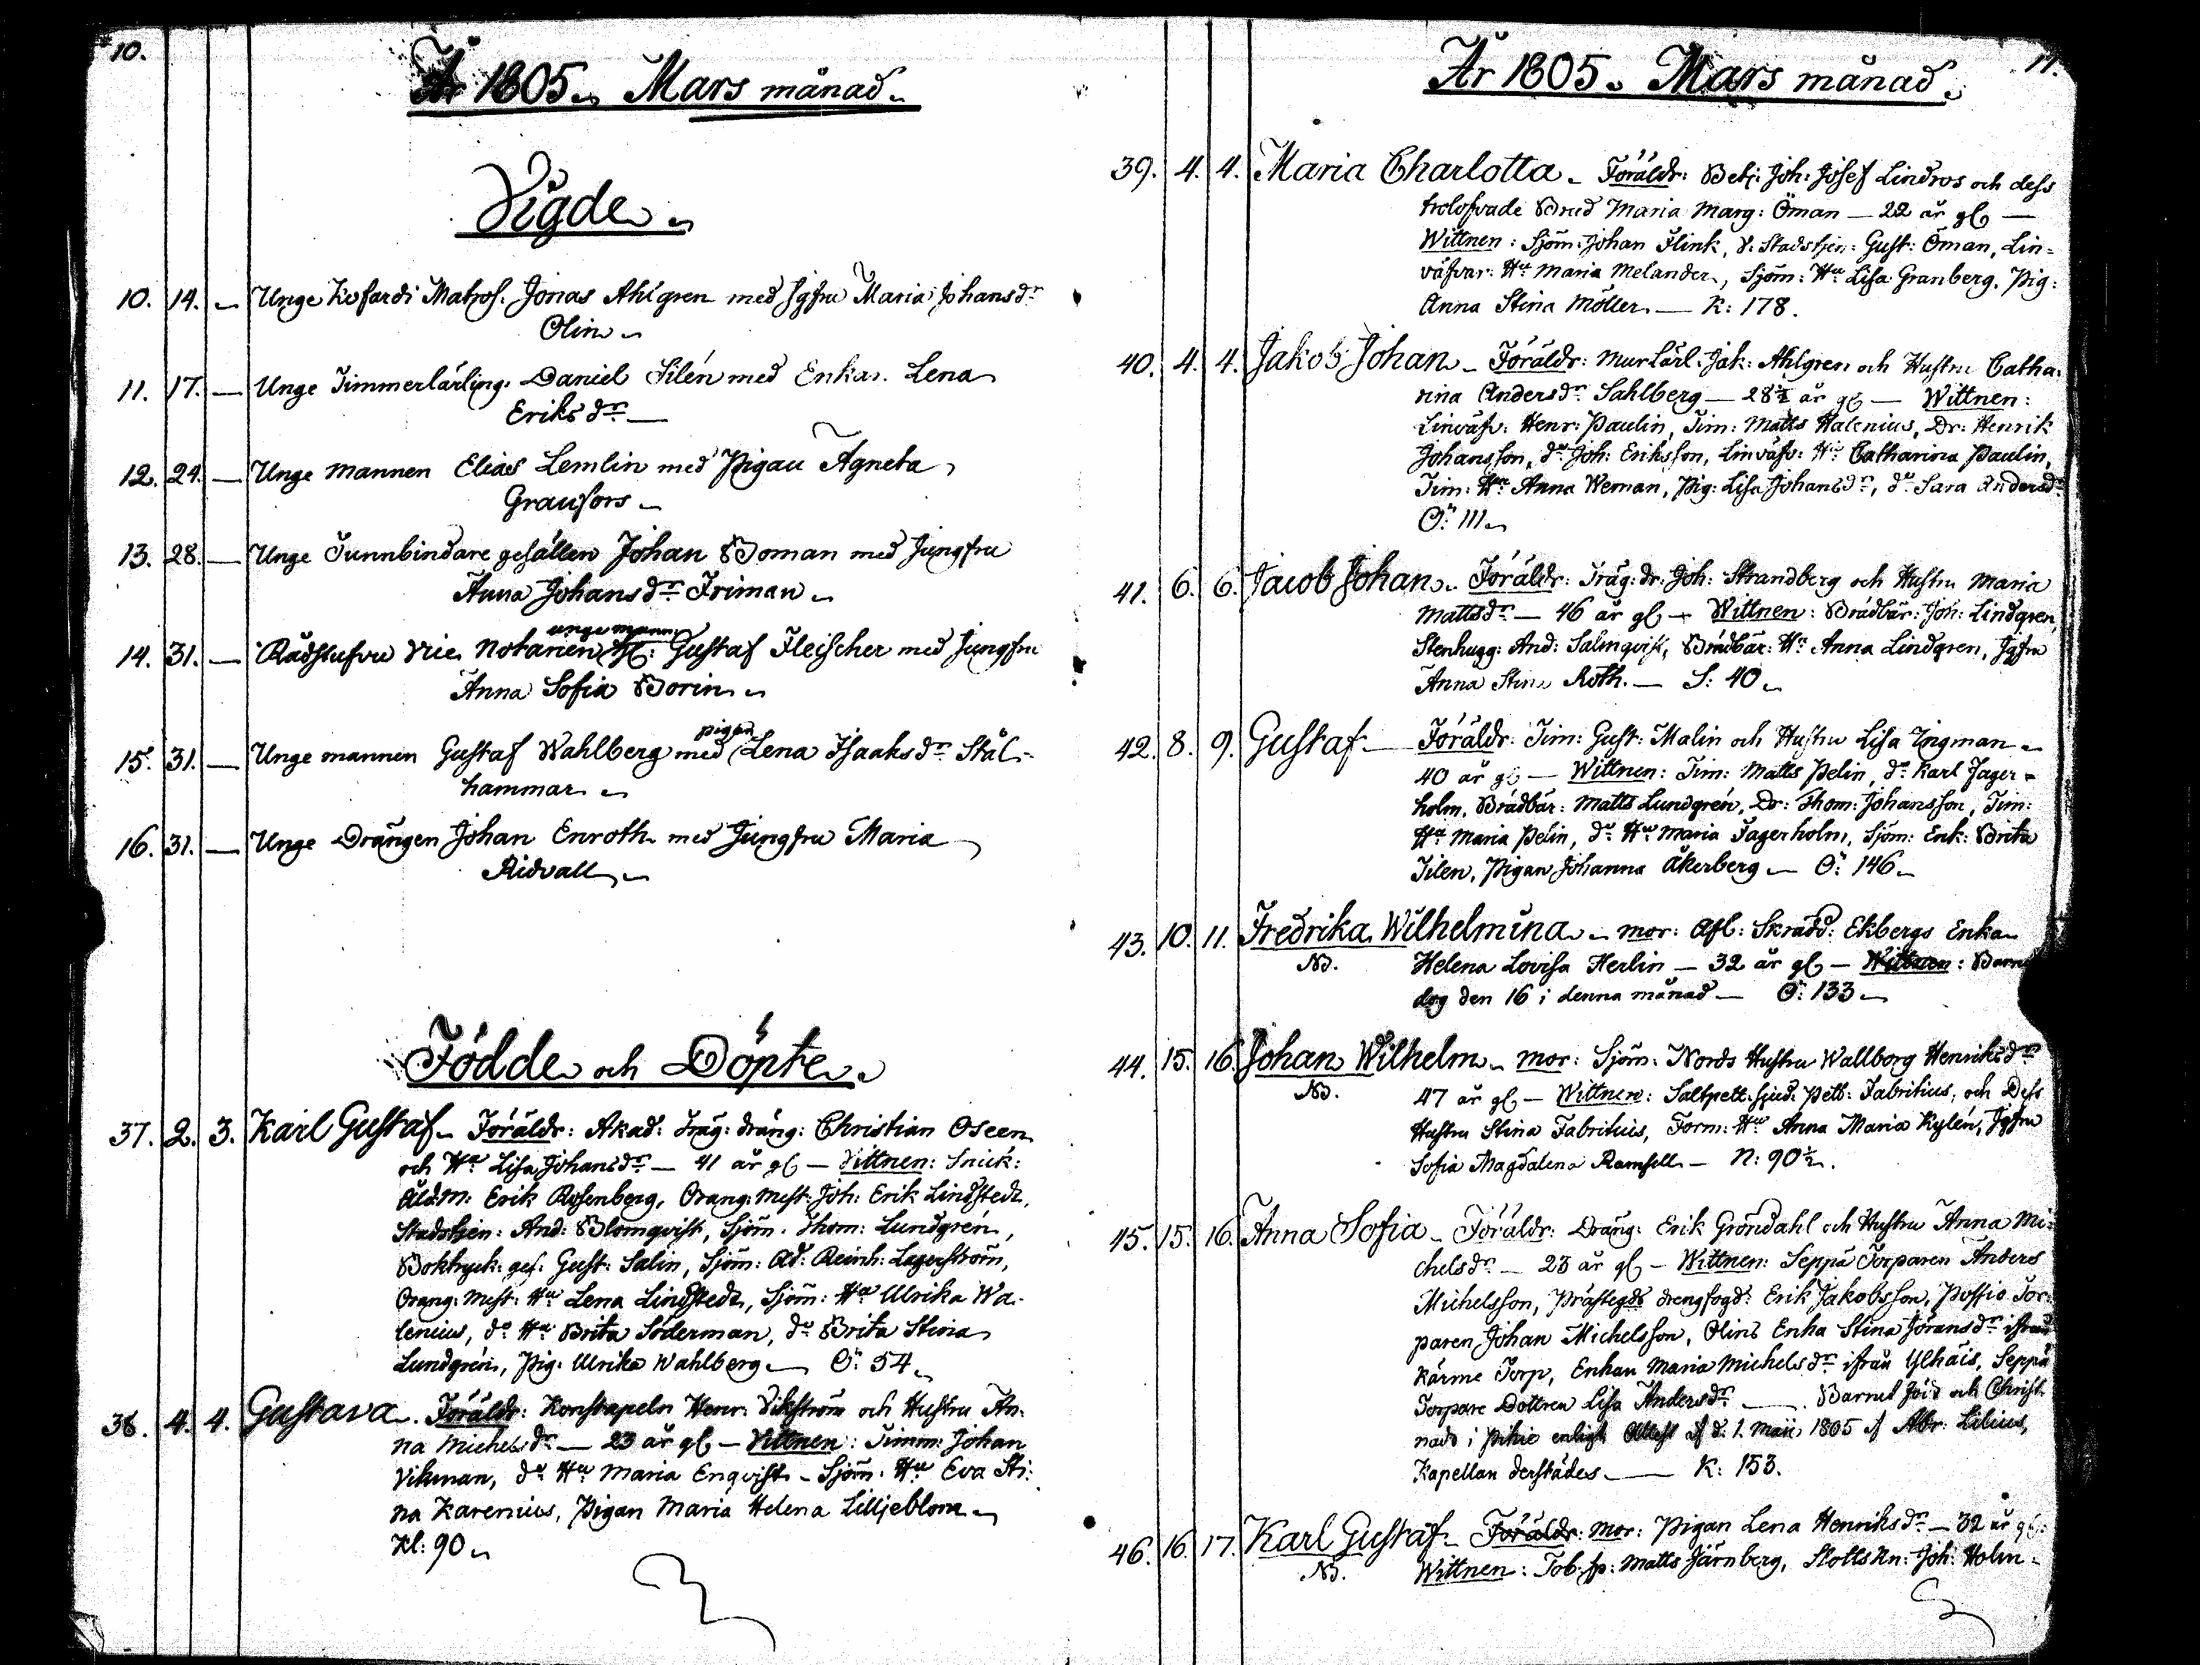 10.
År 1805. Mars månad.
Vigde.
10. 14. — Unge Kofardi Matros. Jonas Ahlgren med Jgfru Maria Johansdr
Olin
11. 17. — Unge Timmerlärling. Daniel Silén med Enkan. Lena
Eriksdr —
12. 24. — Unge mannen Elias Lemlin med Pigan Agneta
Granfors
13. 28. — Unge Tunnbindare gesällen Johan Boman med Jungfru
Anna Johansdr Friman
unge mann
14. 31. — Rådstufvu Vice Notarien Gustaf Fleischer med Jungfru
Anna Sofia Borin
pigan
15. 31. — Unge mannen Gustaf Wahlberg med Lena Isaaksdr Stål-
hammar
16. 31. — Unge Drängen Johan Enroth med Jungfru Maria
Ridvall
Födde och Döpte.
37. 2. 3. Karl Gustaf — Föräldr: Akad: Träg: dräng: Christian Oseen
och Hu Lisa Johansdr — 41 år gl — Vittnen: Snick:
Åld:M: Erik Rosenberg, Orang: Mest: Joh: Erik Lindstedt,
Stadstjen: And: Blomqvist, Sjöm: Thom: Lundgrén,
Boktryck: ges: Gust: Salin, Sjöm: Ad: Reinh: Lagerström,
Orang: Mest: Hu Lena Lindstedt, Sjöm: Hu Ulrika Wa-
lenius, do Hu Brita Söderman, do Brita Stina
Lundgrén, Pig: Ulrika Wahlberg — Ö: 54
38. 4. 4. Gustava. Föräldr: Konstapeln Henr: Vikström och Hustru An-
na Michelsdr — 23 år gl — Vittnen: Timm: Johan
Vikman, do Hu Maria Enqvist — Sjöm: Hu Eva Sti-
na Karenius, Pigan Maria Helena Lilljeblom
Kl: 90
11.
År 1805. Mars månad.
39. 4. 4. Maria Charlotta — Föräldr: Betj: Joh: Josef Lindros och dess
trolofvade Brud Maria Marg: Öman — 22 år gl —
Wittnen: Sjöm: Johan Flink, V: Stadstjen: Gust: Öman, Lin-
väfvar: Hu Maria Melander, Sjöm: Hu Lisa Granberg, Pig:
Anna Stina Möller — K: 178.
40. 4. 4. Jakob Johan — Föräldr: Mur Lärl: Jak: Ahlgren och Hustru Catha-
rina Andersdr Sahlberg — 28½ år gl — Wittnen:
Linväfv: Henr: Paulin, Tim: Matts Halenius, Dr: Henrik
Johansson, do Joh: Eriksson, Linväfv: Hu Catharina Paulin,
Tim: Hu Anna Weman, Pig: Lisa Johansdr, do Sara Andersdr
Ö: 111
41. 6. 6. Jacob Johan — Föräldr: Träg: dr: Joh: Strandberg och Hustru Maria
Mattsdr — 46 år gl — Wittnen: Brädbär: Joh: Lindgren,
Stenhugg: And: Salmqvist, Brädbär: Hu Anna Lindgren, Jgfru
Anna Stina Roth. — S: 40
42. 8. 9. Gustaf — Föräldr: Tim: Gust: Malin och Hustru Lisa Zigman
40 år gl — Wittnen: Tim: Matts Pelin, do Karl Fager-
holm, Brädbär: Matts Lundgrén, Dr: Thom: Johansson, Tim:
Hu Maria Pelin, do Hu Maria Fagerholm, Sjöm: Enk: Brita
Silen, Pigan Johanna Åkerberg — Ö: 146
43. 10. 11. Fredrika Wilhelmina — Mor: Afl: Skrädd: Ekbergs Enka
NB. Helena Lovisa Herlin — 32 år gl — Wittnen: Barnet
dog den 16 i denna månad — Ö: 133
44. 15. 16. Johan Wilhelm — Mor: Sjöm: Nords Hustru Wallborg Henriksdr
NB. 47 år gl — Wittnen: Saltpett: sjud: Pett: Fabritius, och Dess
Hustru Stina Fabritius, Form: Hu Anna Maria Kylén, Jgfru
Sofia Magdalena Ramsell — N: 90½.
45. 15. 16. Anna Sofia — Föräldr: Dräng: Erik Gröndahl och Hustru Anna Mi-
chelsdr — 23 år gl — Wittnen: Seppä Torparen Anders
Michelsson, Prästegds drengfogd: Erik Jakobsson, Possio Tor-
paren Johan Michelsson, Olins Enka Stina Jöransdr ifrån
Kärme Torp, Enkan Maria Michelsdr ifrån Ylhäis, Seppä
Torpare Dottren Lisa Andersdr — Barnet född och Christ-
nadt i Pikie enligt Attest af d: 1. Maii 1805 af Abr: Lilius,
Kapellan derstädes — K: 153.
46. 16. 17. Karl Gustaf — Föräldr: Mor: Pigan Lena Henriksdr — 32 år gl:
NB. Wittnen: Tob: sp: Matts Järnberg, Slotts Kn: Joh: Holm-